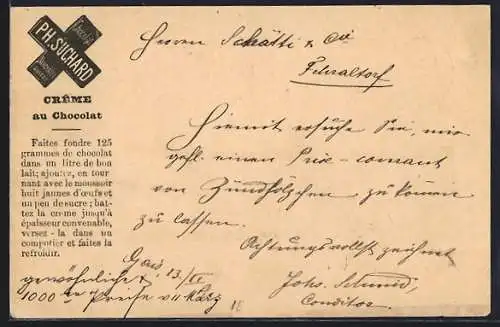 Chocolat
PH. SUCHARD
CRÊME
au Chocolat
Faites fondre 125
grammes de chocolat
dans un litre de bon
lait; ajoutez, en tour
nant avec le moussoir
huit jaunes d'œufs et
un peu de sucre; bat-
tez la crème jusqu'à
épaisseur convenable,
versez-la dans un
compotier et faites la
refroidir.
Herren Schätti & Cie
Fehraltorf
Hiermit ersuche Sie, mir
gefl. einen Prix-courant
von Zündhölzchen zukommen
zu lassen.
Achtungsvollst zeichnet
Johs. Schmid,
Conditor.
Gais, 13/
gewöhnliche
1000er Preise